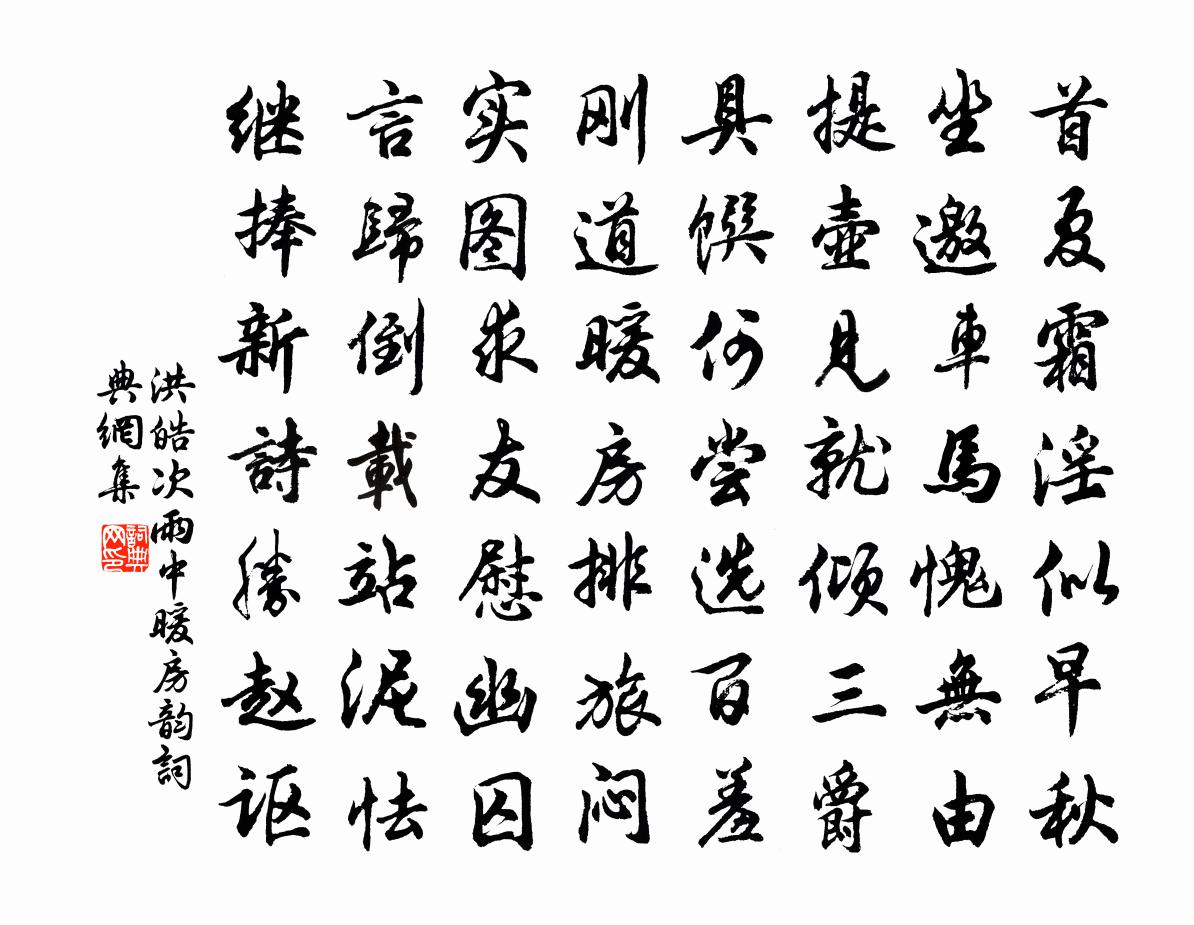 首夏霜淫似早秋
坐邀車馬愧無由
提壺見就倾三爵
具馔何尝选百羞
刚道暖房排旅闷
实图求友慰幽囚
言歸倒載站泥怯
继捧新詩勝赵讴
洪皓次雨中暖房韵詞
典網集
詞典
网印